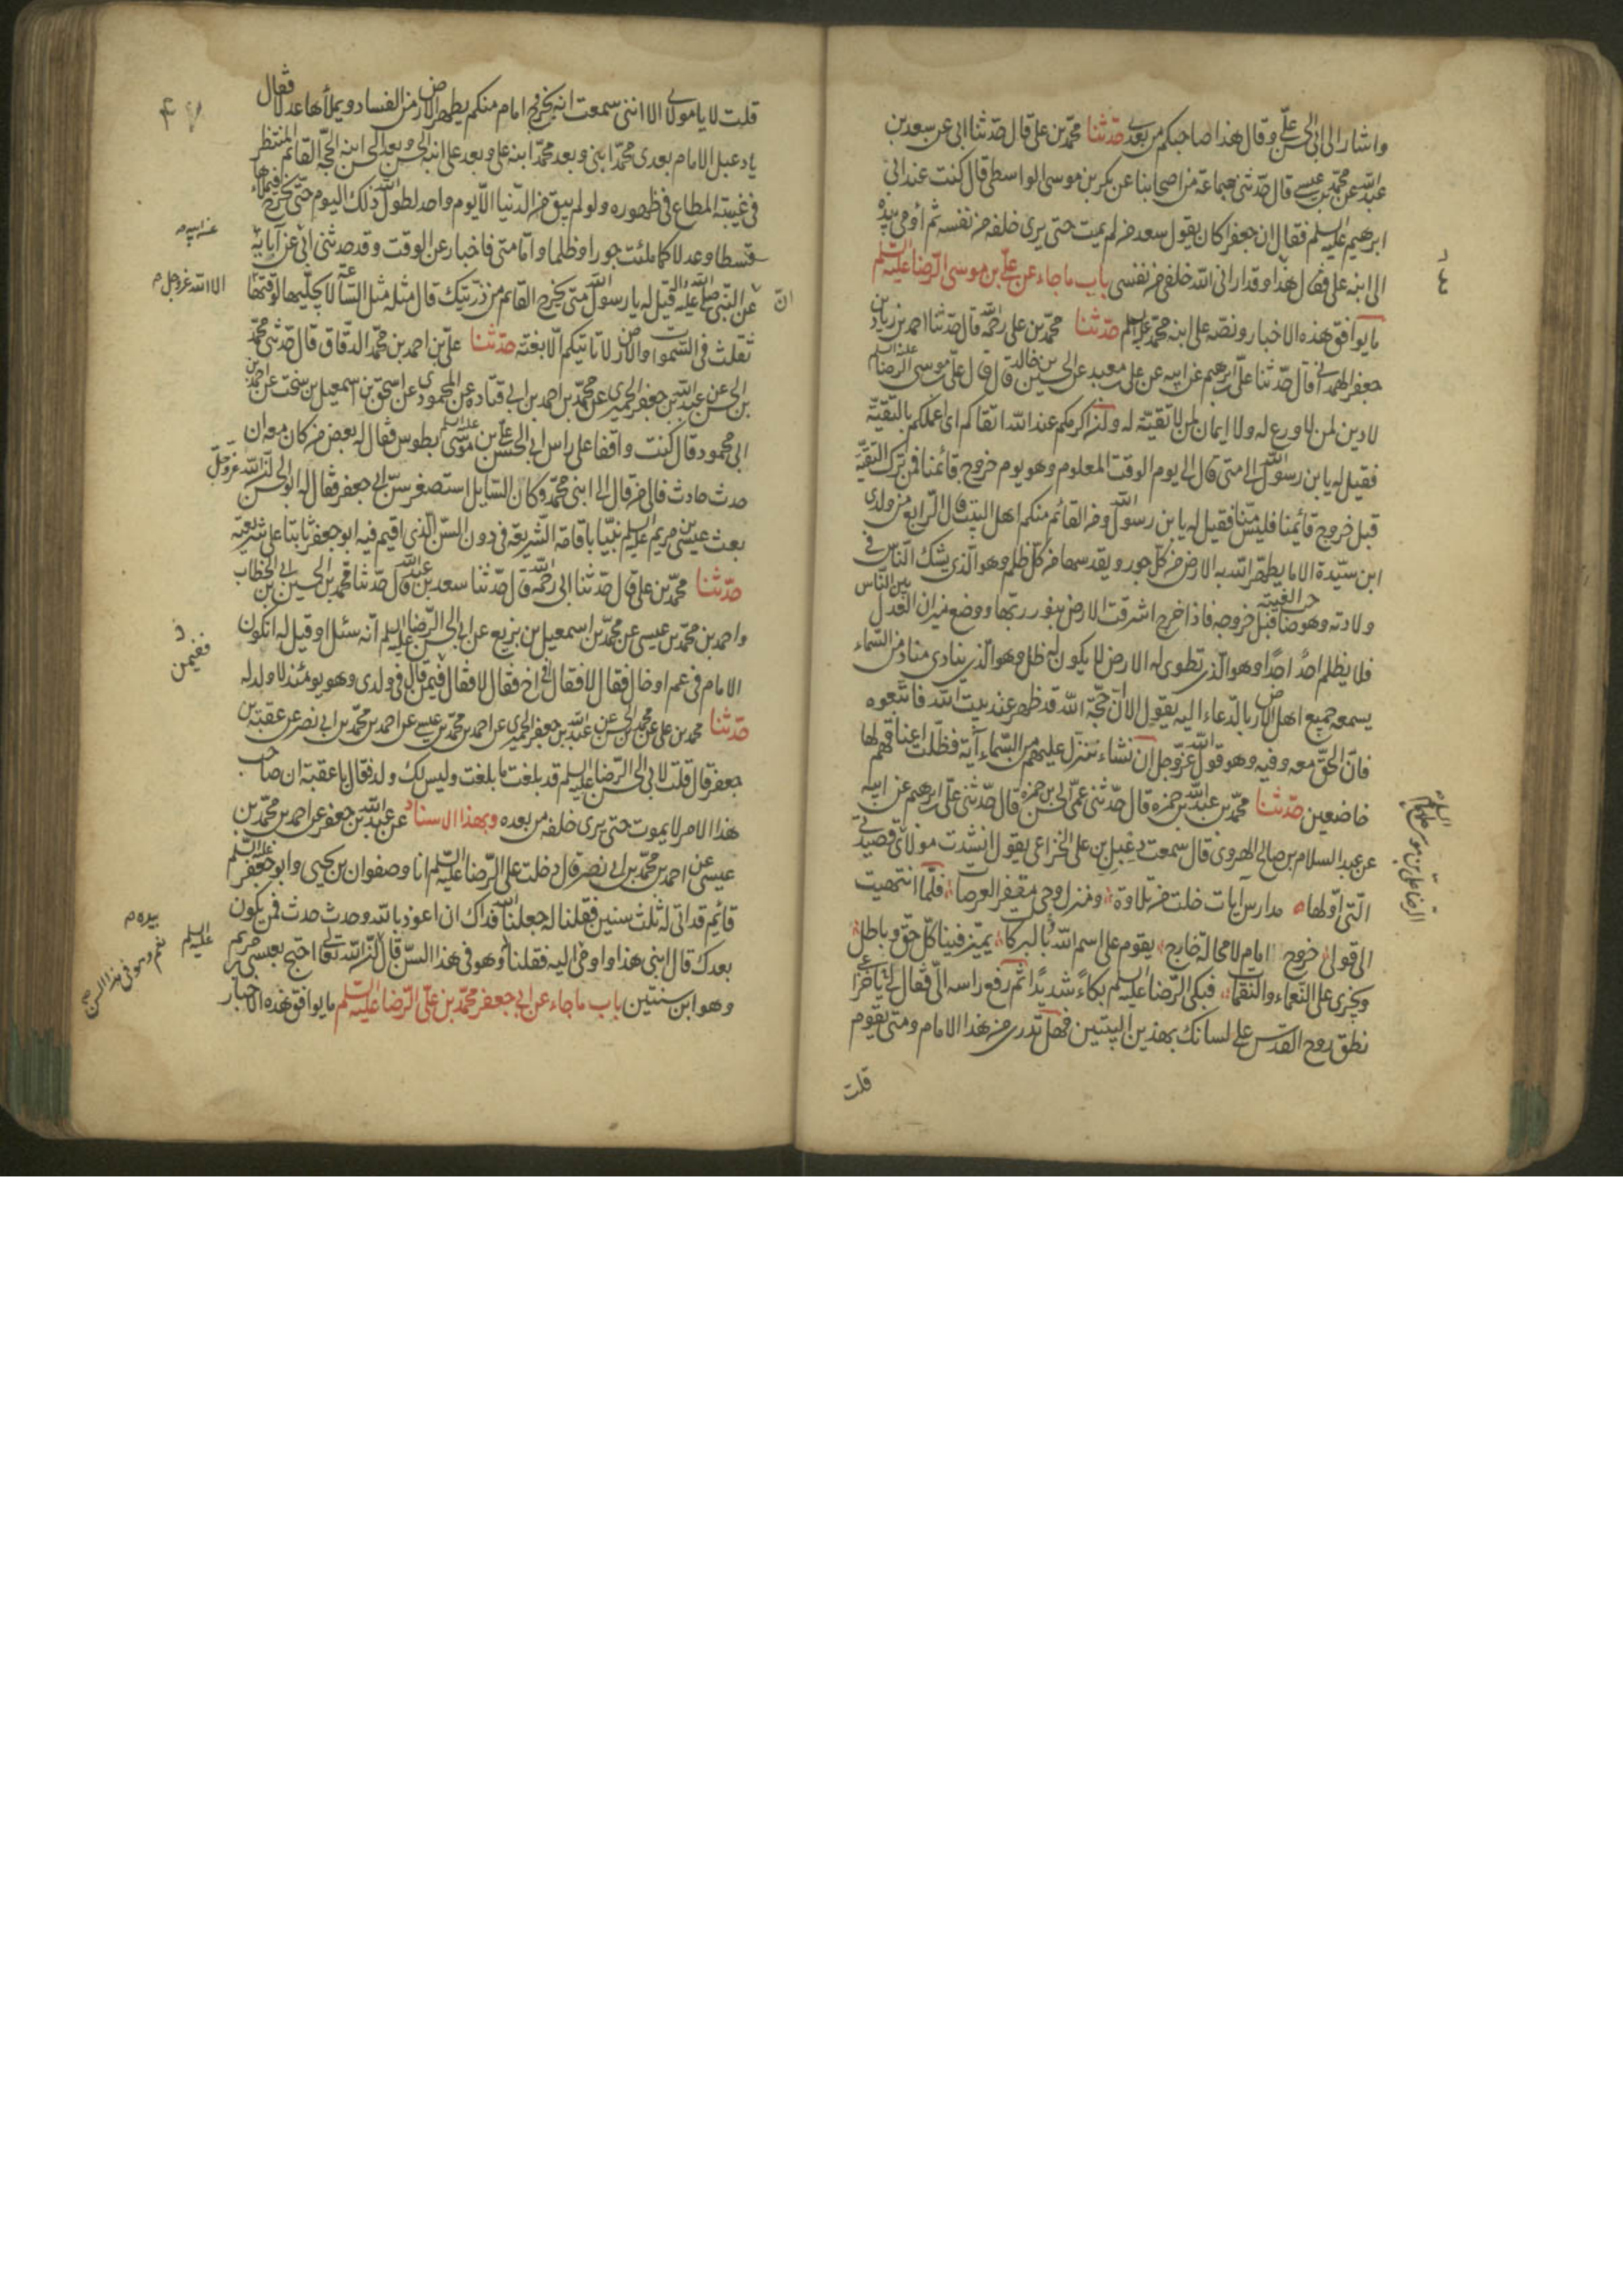 واشار الى ابى الحسن علىّ وقال هذا صاحبكم من بعدى حدّثنا محمّد بن على قال حدّثنا ابى عن سعد بن
عبد الله عن محمّد بن عيسى قال حدّثنى جماعة من اصحابنا عن بكر بن موسى الواسطى قال كنت عند ابى
ابرهيم عليه السلم فقال ان جعفرا كان يقول سعد من لم يمت حتى يرى خلفه من نفسه ثم أومى بيده
الى ابنه على فقال هذا وقد ارانى الله خلفى من نفسى باب ما جاء عن علىّ بن موسى الرّضا عليه السّلم
ما يوافق هذه الاخبار ونصّه على ابنه محمّد عليهما السلم حدّثنا محمّد بن على رحمه الله قال حدّثنا احمد بن زياد بن
جعفر الهمدانى قال حدّثنا علىّ بن ابرهيم عن ابيه عن على بن معبد عن الحسين بن خالد قال قال علىّ بن موسى الرّضا عليه السلم
لا دين لمن لا ورع له ولا ايمان لمن لا تقيّة له وانّ اكرمكم عند الله اتقاكم اى اعملكم بالتقيّة
فقيل له يا بن رسول الله الى متى قال الى يوم الوقت المعلوم وهو يوم خروج قائمنا فمن ترك التقيّة
قبل خروج قائمنا فليس منّا فقيل له يا بن رسول الله ومن القائم منكم اهل البيت قال الرّابع من ولدى
ابن سيّدة الاما يطهّر الله به الارض من كل جور ويقدسها من كلّ ظلم وهو الّذى يشك النّاس فى
ولادته وهو صاحب الغيبة قبل خروجه فاذا خرج اشرقت الارض بنور ربّها ووضع ميزان العدل بين النّاس
فلا يظلم احد احدًا وهو الّذى تطوى له الارض لا يكون له ظل وهو الّذى ينادى مناد من السّماء
يسمعه جميع اهل الارض بالدّعاء اليه يقول الا انّ حجّة الله قد ظهر عند بيت الله فاتّبعوه
فانّ الحقّ معه وفيه وهو قول الله عزّ وجل ان نشاء ننزل عليهم من السّماء آية فظلّت اعناقهم لها
خاضعين حدّثنا محمّد بن عبد الله بن حمزه قال حدّثنى عمّى الحسن بن حمزه قال حدّثنى علىّ بن ابرهيم عن ابيه
عن عبد السلام بن صالح الهروى قال سمعت دعبل بن على الخزاعى يقول انشدت مولاى قصيدتى
الرضا على بن موسى عليهم السلم
الّتى اوّلها مدارس آيات خلت من تلاوة ومنزل وحى مقفر العرصات فلمّا انتهيت
الى قولى خروج امام لا محالة خارج يقوم على اسم الله بالبركات يميّز فينا كلّ حقّ وباطل
ويجزى على النّعماء والنّقمات فبكى الرّضا عليه السلم بكاءً شديدًا ثم رفع راسه الىّ فقال لى يا خزاعى
نطق روح القدس على لسانك بهذين البيتين فهل تدرى من هذا الامام ومتى يقوم
قلت
٤٧
قلت لا يا مولاى الا اننى سمعت انه يخرج امام منكم يطهر الارض من الفساد ويملأها عدلا فقال
يا دعبل الامام بعدى محمّد ابنى وبعد محمّد ابنه على وبعد على ابنه الحسن وبعد الحسن ابنه الحجّة القائم المنتظر
فى غيبته المطاع فى ظهوره ولو لم يبق من الدّنيا الّا يوم واحد لطول الله ذلك اليوم حتّى يخرج فيملاءها
قسطا وعدلا كما ملئت جورا وظلما وامّا متى فاخبار عن الوقت وقد حدثنى ابى عن آبائه
عن ابيه
انّ
عن النّبى صلى الله عليه واله قيل له يا رسول الله متى يخرج القائم من ذرّيتك قال مثله مثل السّاعة لا يجلّيها لوقتها
الا الله عز وجل
ثقلت فى السّموات والارض لا تاتيكم الّا بغتة حدّثنا علىّ بن احمد بن محمّد الدقّاق قال حدّثنى محمّد
بن الحسن عن عبد الله بن جعفر الحميرى عن محمّد بن احمد بن ابى قتاده عن المحمودى عن اسحق بن اسمعيل بن نوبخت عن احمد بن
ابى محمود قال كنت واقفا على راس ابى الحسن علىّ بن موسى عليه السلم بطوس فقال له بعض من كان معه ان
حدث حادث فالى من قال الى ابنى محمّد وكان السّايل استصغر سنّ ابى جعفر فقال له ابو الحسن انّ الله عز وجلّ
بعث عيسى بن مريم عليه السلم نبيّا باقامة الشّريعة فى دون السّن الّذى اقيم فيه ابو جعفر ثابتا على شريعته
حدّثنا محمّد بن على قال حدّثنا ابى رحمه الله قال حدّثنا سعد بن عبد الله قال حدّثنا محمّد بن الحسين بن ابى الخطاب
واحمد بن محمّد بن عيسى عن محمّد بن اسمعيل بن بزيع عن ابى الحسن الرّضا عليه السلم انّه سئل او قيل له اتكون
الامام فى عم او خال فقال لا فقال ففى اخ فقال لا فقال فيمن قال فى ولدى وهو يومئذ لا ولد له
ففيمن
حدّثنا محمّد بن على عن محمّد بن الحسن عن عبد الله بن جعفر الحميرى عن احمد بن محمّد بن عيسى عن احمد بن محمّد بن ابى نصر عن عقبة بن
جعفر قال قلت لابى الحسن الرّضا عليه السلم قد بلغت ما بلغت وليس لك ولد فقال يا عقبة ان صاحب
هذا الامر لا يموت حتى يرى خلفه من بعده وبهذا الاسناد عن عبد الله بن جعفر عن احمد بن محمّد بن
عيسى عن احمد بن محمّد بن ابى نصر قال دخلت على الرّضا عليه السّلم انا وصفوان بن يحيى وابو جعفر عليه السّلم
قائم قد اتى له ثلث سنين فقلنا له جعلنا الله فداك ان اعوذ بالله وحدث حدث فمن يكون
بعدك قال ابنى هذا واومى اليه فقلنا وهو فى هذا السّن قال انّ الله تعالى احتج بعيسى بن مريم
بيده
عليه السلم
نعم وهو فى هذا السن
وهو ابن سنتين باب ما جاء عن ابى جعفر محمّد بن علىّ الرّضا عليه السّلم ما يوافق هذه الاخبار